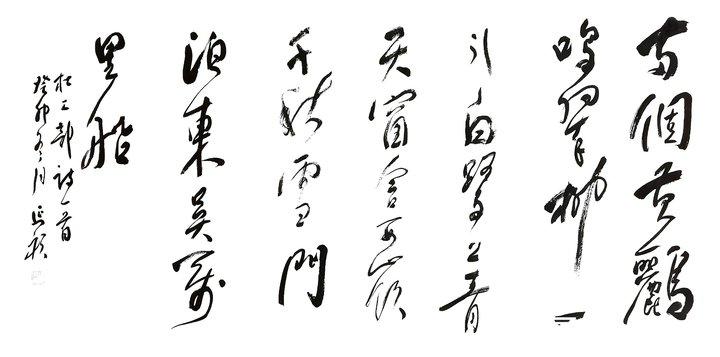 兩個黄鸝
鳴翠柳一
行白鷺上青
天窗含西嶺
千秋雪門
泊東吴萬
里船
杜工部詩一首
癸卯冬月